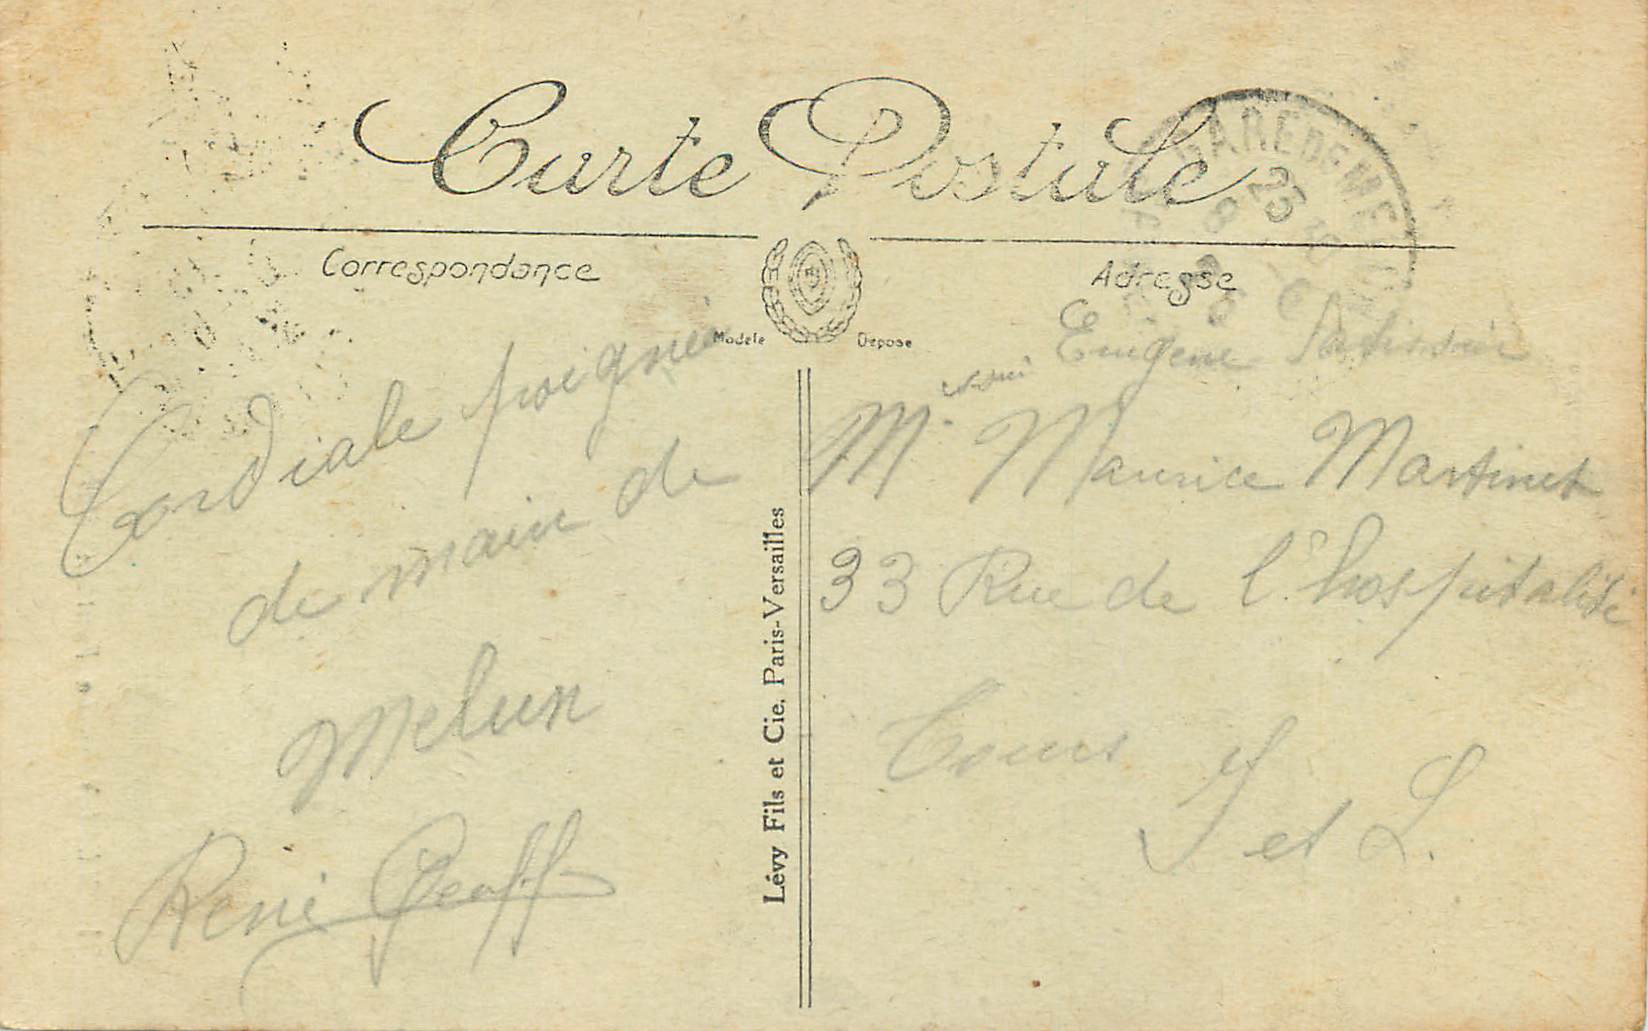 Carte Postale
Correspondance
Adresse
Modèle Déposé
GARE DE MELUN
23
8
Cordiale poignée
de main de
Melun
René
Lévy Fils et Cie, Paris-Versailles
Eugene
Mr Maurice Martinet
33 Rue de l'hospitalité
Tours
I et L.